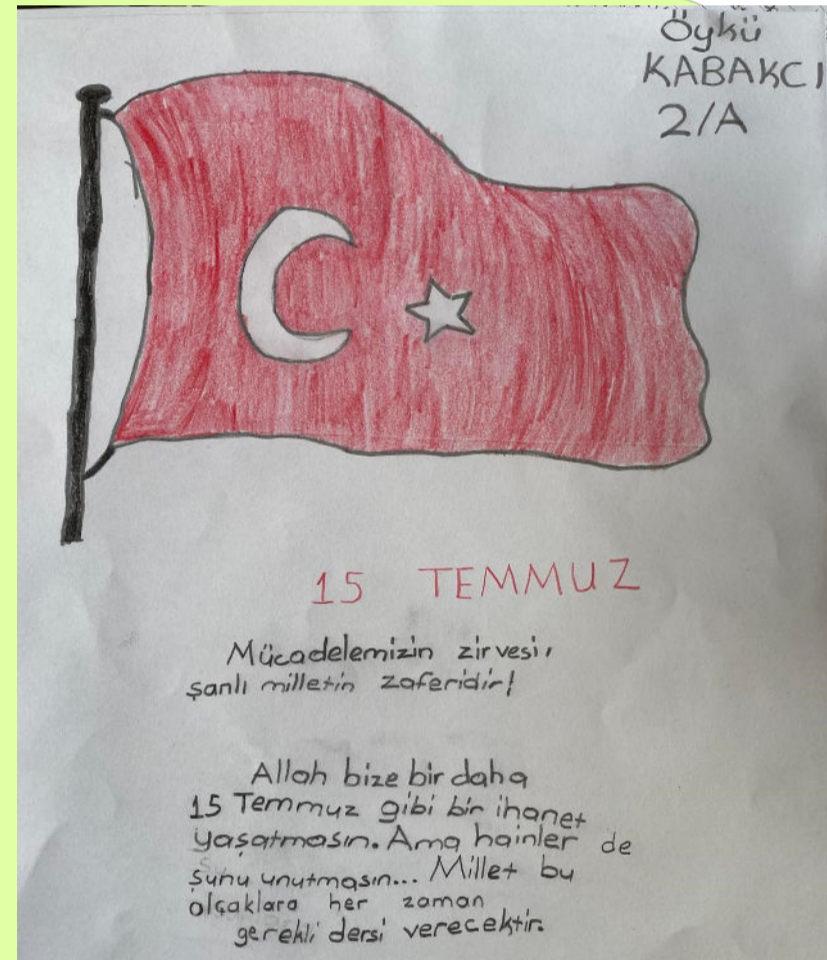 Öykü
KABAKCI
2/A
15 TEMMUZ
Mücadelemizin zirvesi,
şanlı milletin zaferidir!
Allah bize bir daha
15 Temmuz gibi bir ihanet
yaşatmasın. Ama hainler de
şunu unutmasın... Millet bu
alçaklara her zaman
gerekli dersi verecektir.